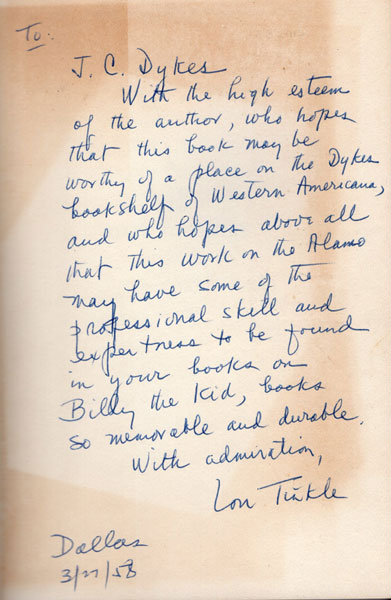 To:
J. C. Dykes
With the high esteem
of the author, who hopes
that this book may be
worthy of a place on the Dykes
bookshelf of Western Americana,
and who hopes above all
that this work on the Alamo
may have some of the
professional skill and
expertness to be found
in your books on
Billy the Kid, books
so memorable and durable.
With admiration,
Lon Tinkle
Dallas
3/27/58